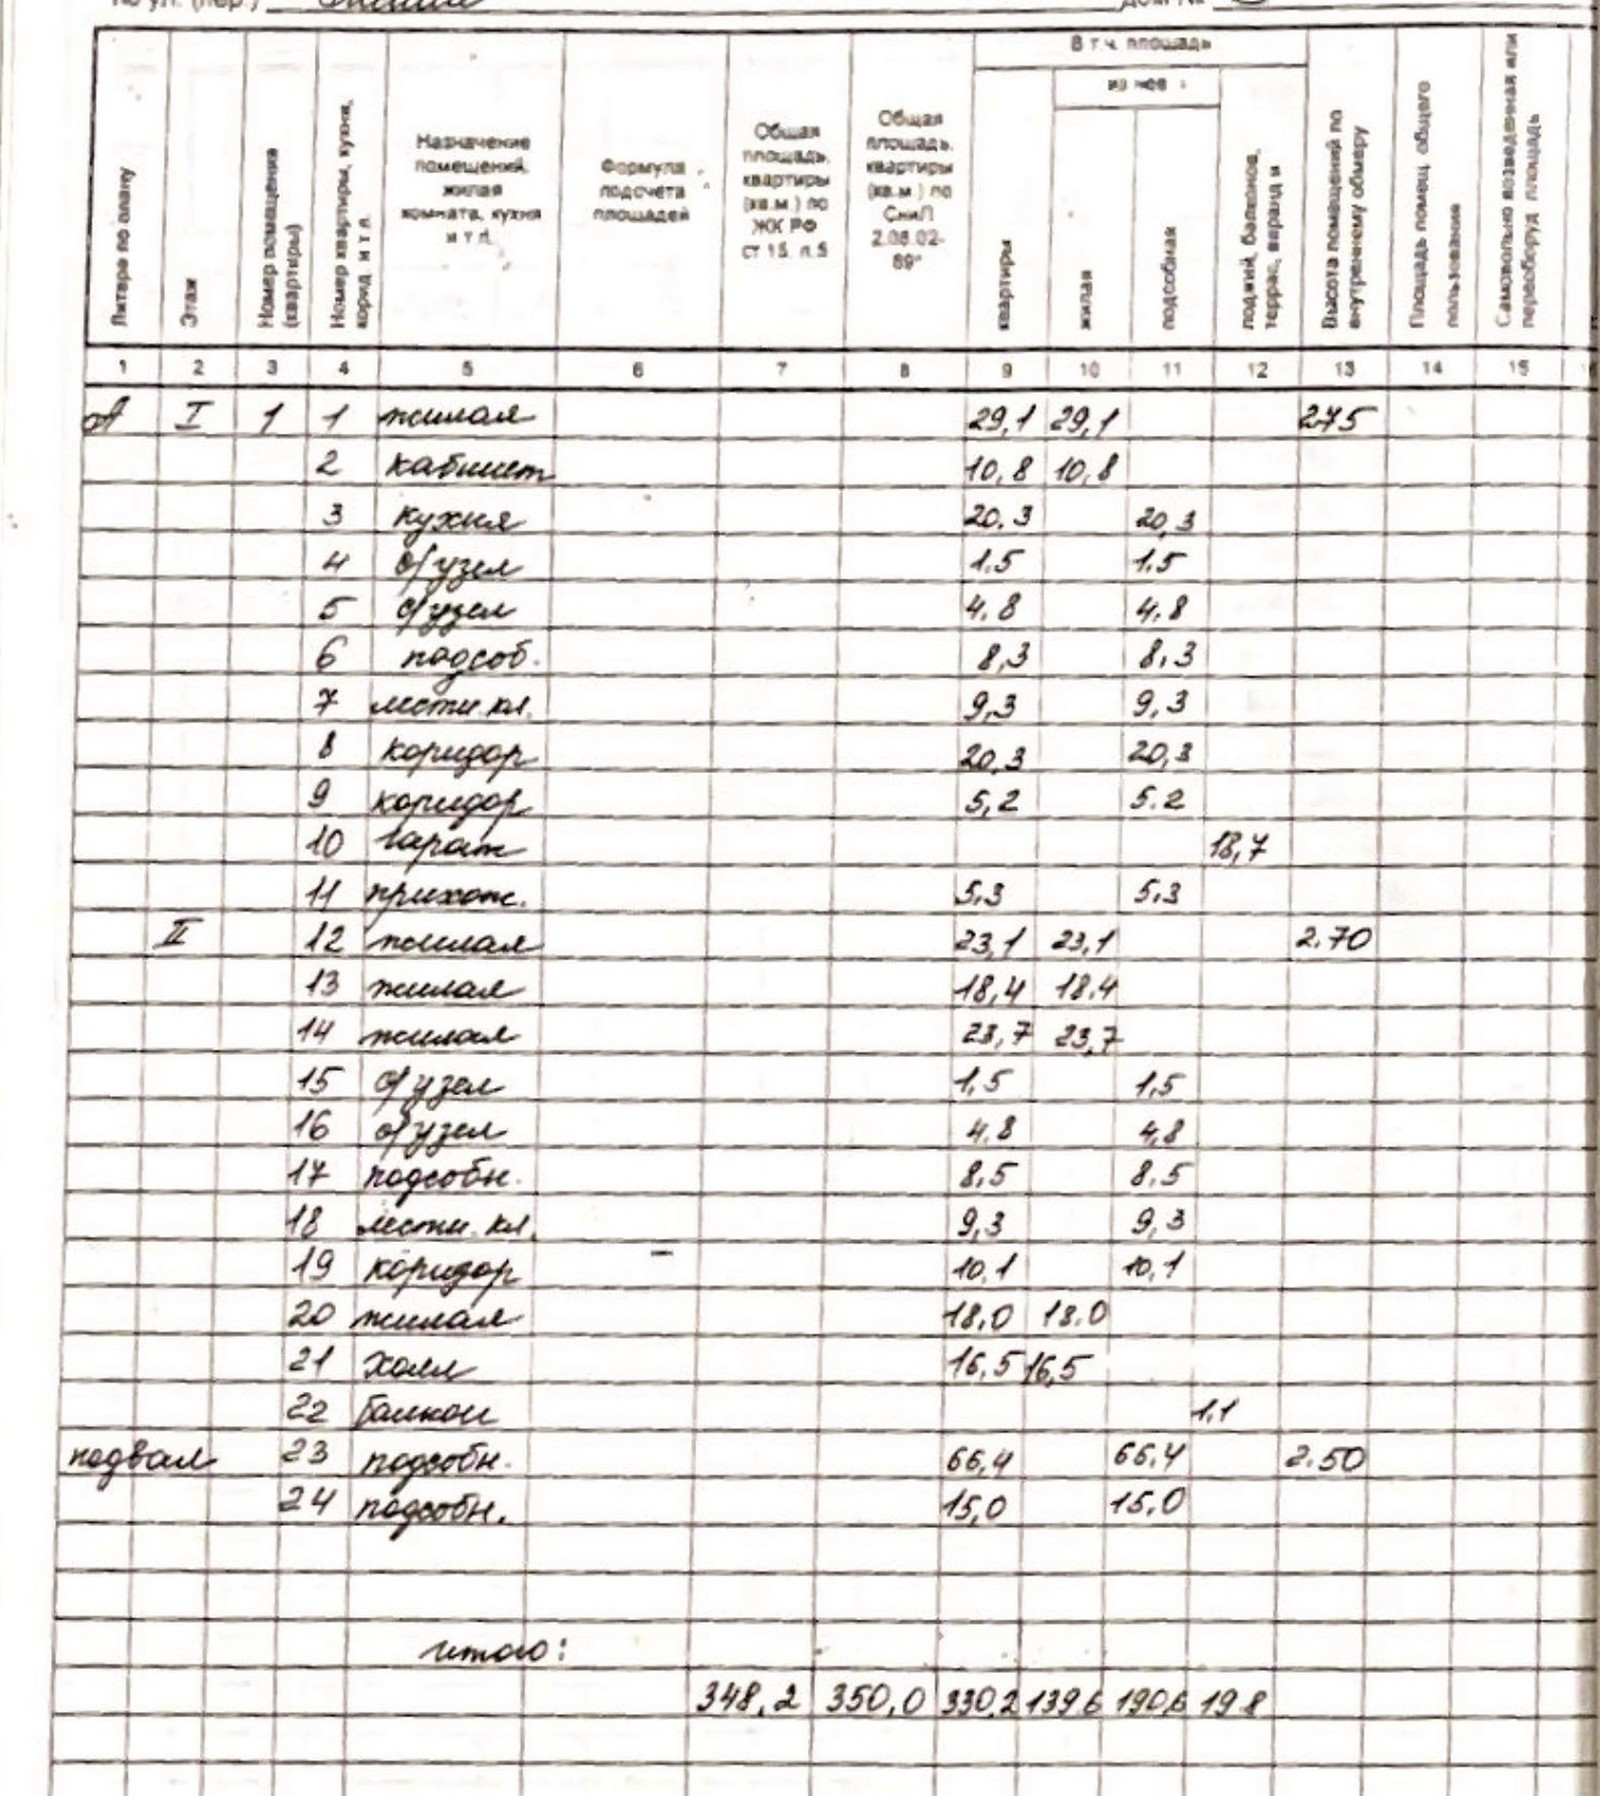 по ул. (пер.) дом №
Литера по плану
Этаж
Номер помещения (квартиры)
Номер квартиры, кухня, корид. и т.п.
Назначение помещений, жилая комната, кухня и т.п.
Формула подсчета площадей
Общая площадь, квартиры (кв.м.) по ЖК РФ ст 15. п.5
Общая площадь, квартиры (кв.м.) по СниП 2.08.02-89*
В т.ч. площадь
из нее
квартиры
жилая
подсобная
лоджий, балконов, террас, веранд и
Высота помещений по внутреннему обмеру
Площадь помещ. общего пользования
Самовольно возведенная или переоборуд. площадь
1 2 3 4 5 6 7 8 9 10 11 12 13 14 15
А I 1 1 жилая 29,1 29,1 2.75
2 кабинет 10,8 10,8
3 кухня 20.3 20,3
4 с/узел 1.5 1.5
5 с/узел 4.8 4.8
6 подсоб. 8,3 8,3
7 лестн. кл. 9,3 9,3
8 коридор 20,3 20,3
9 коридор 5,2 5.2
10 гараж 18,7
11 прихож. 5,3 5,3
II 12 жилая 23,1 23,1 2.70
13 жилая 18,4 18.4
14 жилая 23,7 23,7
15 с/узел 1,5 1,5
16 с/узел 4.8 4,8
17 подсобн. 8,5 8.5
18 лестн. кл. 9,3 9,3
19 коридор 10,1 10,1
20 жилая 18,0 18.0
21 холл 16,5 16,5
22 балкон 1,1
подвал 23 подсобн. 66,4 66,4 2.50
24 подсобн. 15,0 15,0
итого:
348,2 350,0 330.2 139.6 190,6 19.8